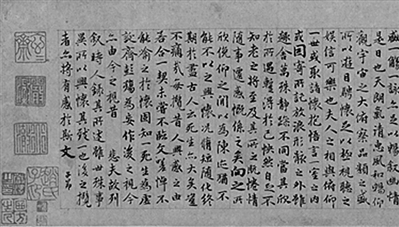 盛一觴一詠亦足以暢叙幽情
是日也天朗氣清惠風和暢仰
觀宇宙之大俯察品類之盛
所以遊目騁懷足以極視聽之
娛信可樂也夫人之相與俯仰
一世或取諸懷抱悟言一室之內
或因寄所託放浪形骸之外雖
趣舍萬殊静躁不同當其欣
於所遇暫得於己快然自足不
知老之將至及其所之既惓情
隨事遷感慨係之矣向之所
欣俛仰之間以為陳迹猶不
能不以之興懷況脩短隨化終
期於盡古人云死生亦大矣豈
不痛哉每攬昔人興感之由
若合一契未嘗不臨文嗟悼不
能喻之於懷固知一死生為虛
誕齊彭殤為妄作後之視今
亦由今之視昔 悲夫故列
叙時人錄其所述雖世殊事
異所以興懷其致一也後之攬
者亦將有感於斯文 子昂